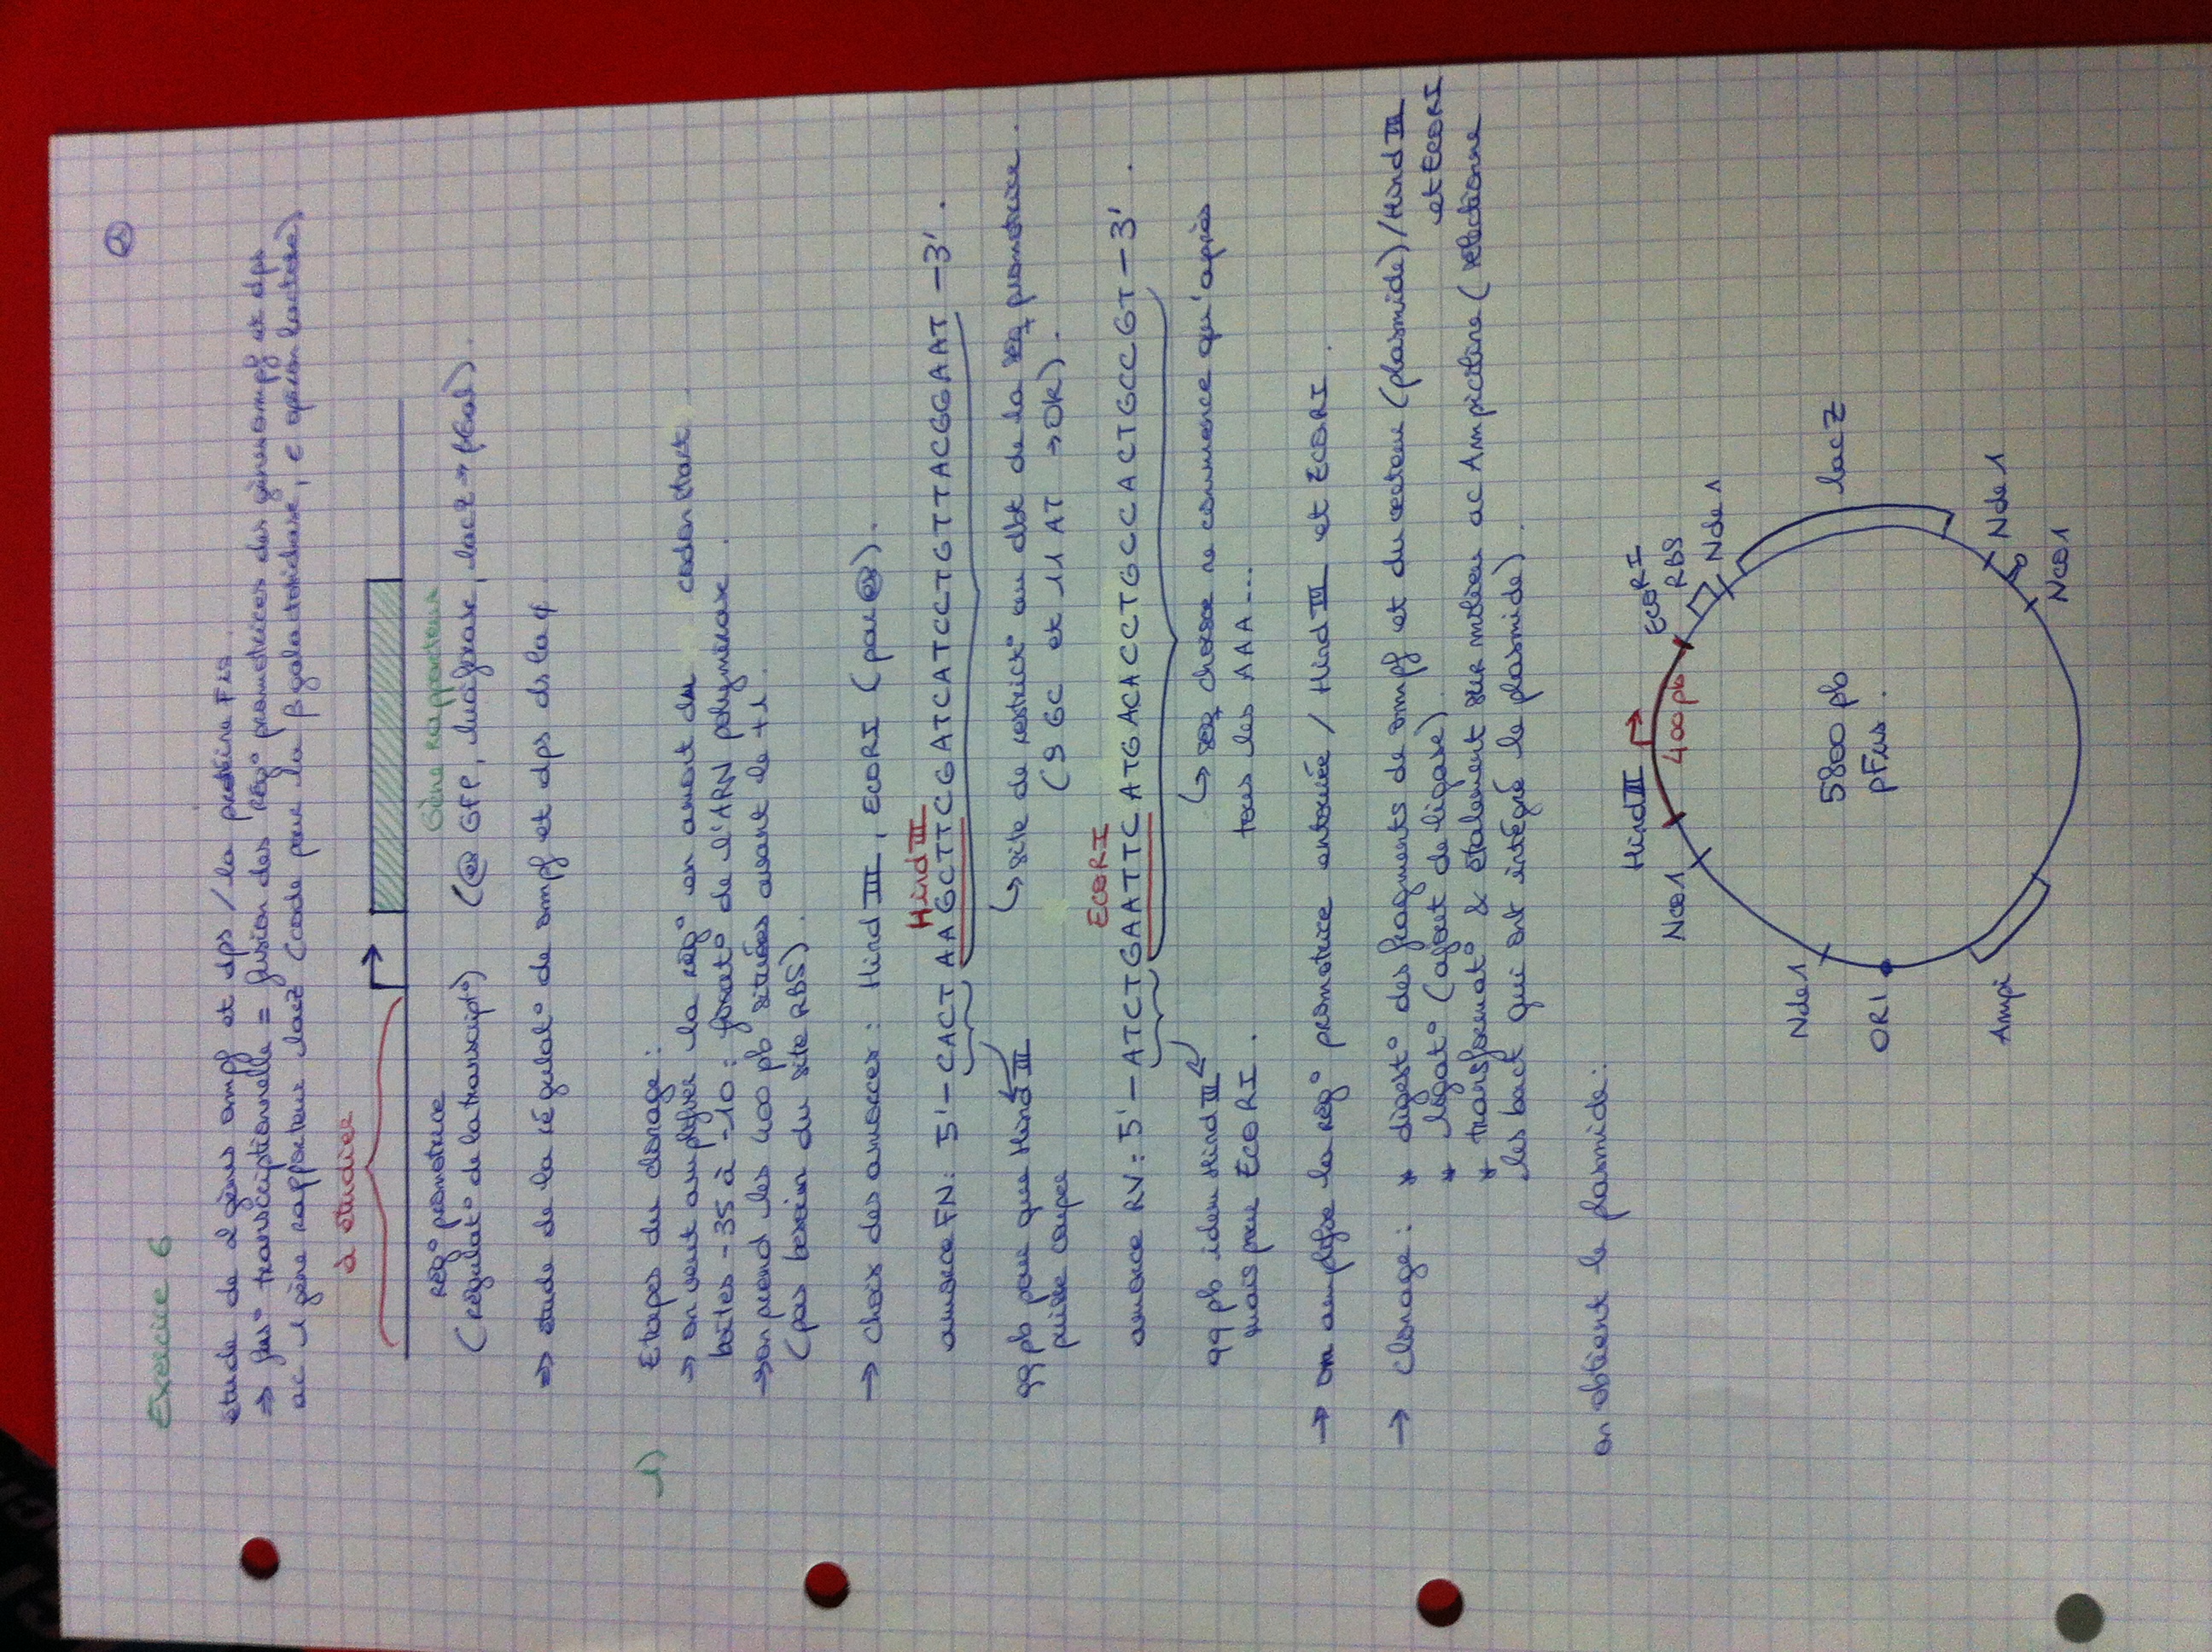 Exercice 6
étude de 2 gènes ompf et dps / la protéine Fis.
⇒ fus° transcriptionnelle = fusion des Rég° promotrices des gènes ompf et dps
ac 1 gène rapporteur lacZ (code pour la β galactosidase, € opéron lactose)
à étudier
Rég° promotrice
Gène Rapporteur
(régulat° de la transcript°)
(ex GFP, luciférase, lacZ → βGal).
⇒ étude de la régulat° de ompf et dps ds la ¢
1) Etapes du clonage :
→ on veut amplifier la rég° en amont du codon start
boîtes -35 à -10 : fixat° de l'ARN polymérase.
→ on prend les 400 pb situées avant le +1.
(pas besoin du site RBS).
→ choix des amorces : Hind III, EcoRI (par ex).
Hind III
amorce FN : 5'- CACT AAGCTTCGATCATCCTGTTACGGAAT -3'.
qq pb pour que Hind III
puisse couper
↳ site de restrict° au dbt de la seq promotrice.
(9 GC et 11 AT → OK).
EcoRI
amorce RV : 5'- ATCTGAATTCATGACACCTGCCACTGCCGT -3'.
qq pb idem Hind III
mais pour EcoRI.
↳ seq choisie ne commence qu'après
tous les AAA...
→ on amplifie la rég° promotrice entourée / Hind III et EcoRI.
→ clonage : * digest° des fragments de ompf et du vecteur (plasmide) / Hind III
et EcoRI
* ligat° (ajout de ligase).
* transformat° & étalement sur milieu ac Ampiciline (sélectionne
les bact qui ont intégré le plasmide).
on obtient le plasmide :
Hind III
EcoRI
Nco1
400 pb
RBS
Nde1
Nde1
5800 pb
lacZ
ORI
pFus.
Ampi
Nde1
Nco1